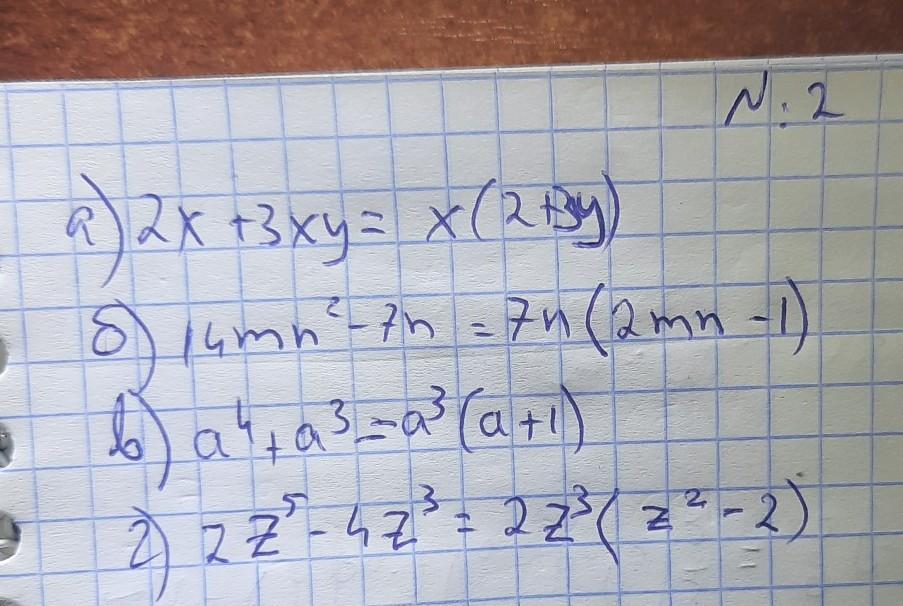 N: 2
а) 2x + 3xy = x(2+3y)
б) 14mn² - 7n = 7n(2mn - 1)
в) a⁴ + a³ = a³(a+1)
г) 2z⁵ - 4z³ = 2z³(z² - 2)